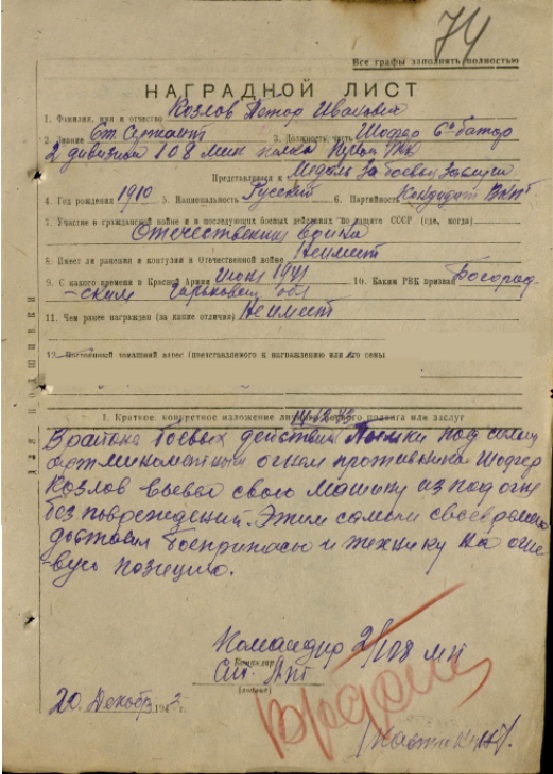 74
Все графы заполнять полностью
НАГРАДНОЙ ЛИСТ
1. Фамилия, имя и отчество Козлов Петор Иванович
2. Звание Ст. Сержант 3. Должность, часть Шофер 6й батор
2 дивизион 108 мин полка
Представляется к Медаль За боевые Заслуги
4. Год рождения 1910 5. Национальность Русский 6. Партийность Кандидат ВКП
7. Участие в гражданской войне и в последующих боевых действиях по защите СССР (где, когда)
Отечественная война
8. Имеет ли ранения и контузии в Отечественной войне Неимеет
9. С какого времени в Красной Армии Июня 1941 10. Каким РВК призван Богорад-
-ским Горьковский обл
11. Чем ранее награжден (за какие отличия) Неимеет
12. Постоянный домашний адрес (представляемого к награждению или его семьи
Для подшивки
I. Краткое конкретное изложение личного боевого подвига или заслуг
В районе боевых действий под силны
арт минометным огнем противника Шофер
Козлов вывел свою машину из под огня
без повреждений. Этим самым своевремено
доставил боеприпасы и технику на огне-
-вую позицию.
Командир 2/108 мп
Командир
(подпись)
20. Декабр 194